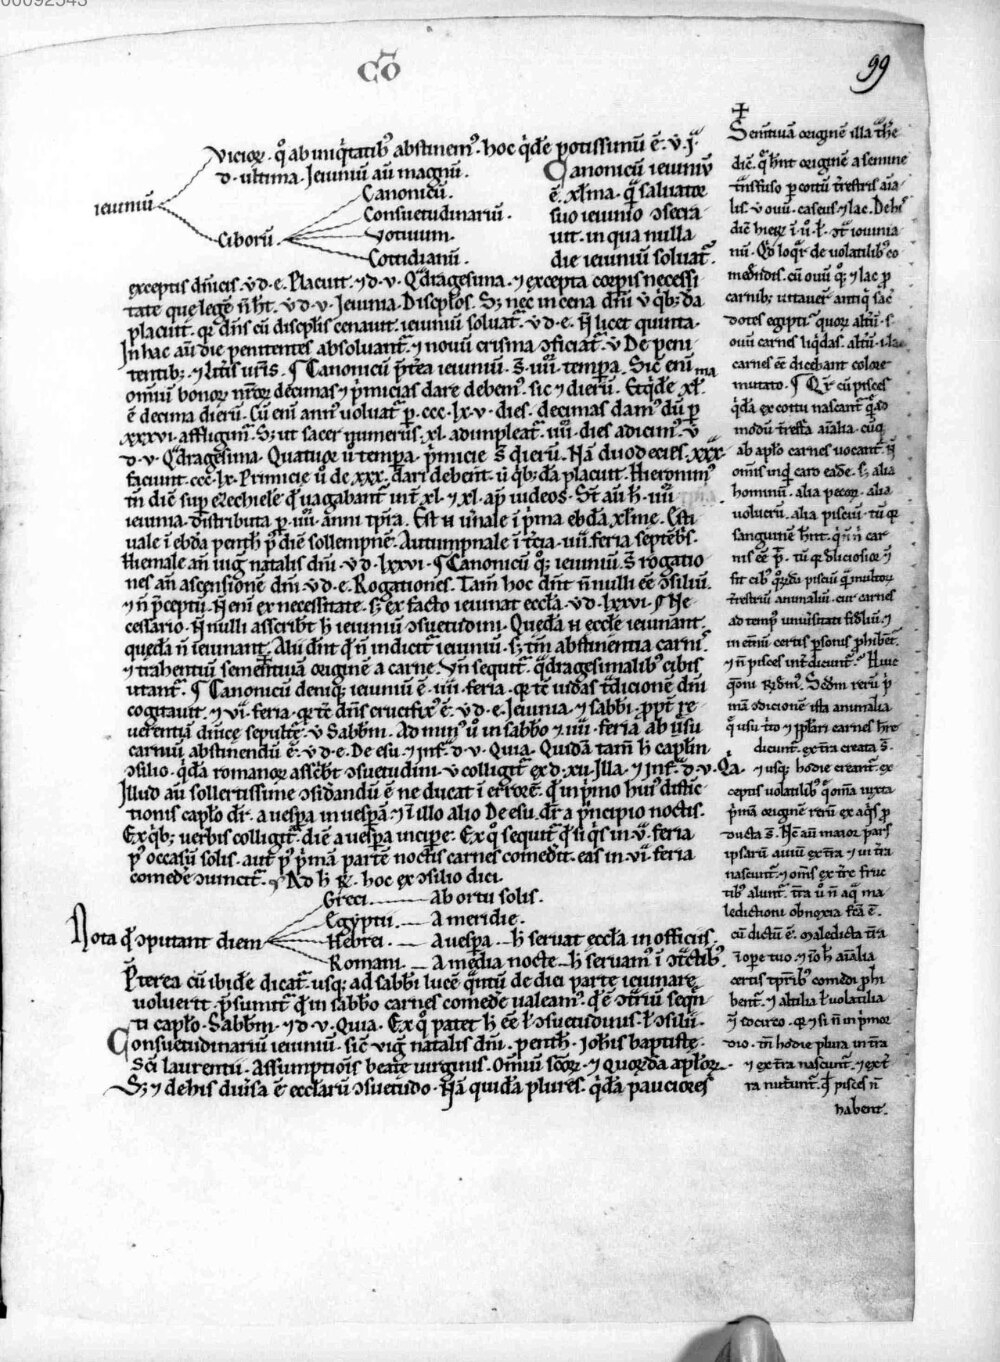 00092543
Cō
99
vicior̄. q̄ ab iniq̇tatib; abstinem᷒. hoc q̇dē potissimū ē. v. j.
d. ultima. Ieiuniū aū magnū.
ieiuniū
Ciborū.
Canonicū.
Consuetudinariū.
Votiuum.
Cottidianū.
Canonicū ieiuniū
ē. xlma. q̄ saluator
suo ieiunio ɔsecra
uit. in qua nulla
die ieiuniū soluat᷒.
exceptis dn̄icis. v. d. e. Placuit. ⁊ d. v. Qdragesima. ⁊ excepta corp̄is necessi
tate que legē n̄ ht̄. v. d. v. Ieiunia. Discip̄los. S; nec in cena dn̄i v q̇b; dā
placuit. qr̄ dn̄s cū discip̄lis cenauit. ieiuniū soluat᷒. v. d. e. N̄ licet quinta.
In hac aū die penitentes absoluant᷒. ⁊ nouū crisma ɔficiat᷒. v De peni
tentib; ⁊ litt̄is ur̄is. ¶ Canonicū p̄t̄ea ieiuniū. s̄. iiiior tempa. Sic enī
omniū bonor̄ nr̄or̄ decimas ⁊ p̄micias dare debem᷒. sic ⁊ dierū. Etq̇dē xl
ma
ē decima dierū. Cū enī ann᷒ voluat᷒ p̄. ccc. lx. v. dies. decimas dam᷒ dū p̄
xxxvi. affligim᷒. S; ut sacer numerus. xl. adimpleat᷒. iiiior dies adicim᷒. v
d. v. Qdragesima. Quatuor ū tempa. p̄micie s̄ dierū. Nā duodecies. xxx.
faciunt. ccc. lx. Primicie ū de xxx. dari debent. ū q̇b; dā placuit. Hieronim᷒
tn̄ diē sup ezechielē q̄ uagabant int̄ xl. ⁊ xl. ap iudeos. St̄ aū h̄. iiiior
ieiunia. distributa p̄. iiiior. anni tp̄ra. Est n̄ u̇nale ī p̄ma ebdā xlme. Esti
uale ī ebdā penth p̄ diē sollempnē. Autumpnale ī t̄cia. iiii feria septēb̄s.
Hiemale an̄ iug̅ natalis dn̄i. v d. lxxvi. ¶ Canonicū q; ieiuniū. s̄ rogatio
nes an̄ ascensionē dn̄i. v. d. e. Rogationes. Tam̄ hoc dn̄t n̄ nulli eē ɔsiliū.
⁊ n̄ p̄ceptū. N̄ enī ex necessitate. s; ex facto ieiunat eccl̄a. v d. lxxvi. ¶ Ne
cessario. N̄ nulli asscribt̄ h̄ ieiuniū ɔsuetudini. Quedā n̄ eccl̄e ieiunant.
quedā n̄ ieiunant. Alii dn̄t q̄ n̄ indicit᷒ ieiuniū. s; tm̄ abstinentia carniū.
⁊ trahentiū sementiuā originē a carne. Un̄ sequit᷒. q̄dragesimalib; cibis
utant᷒. ¶ Canonicū deniq; ieiuniū ē. iiii. feria. qr̄ tē iudas t̄dicionē dn̄i
cogitauit. ⁊ vi. feria. qr̄ tē dn̄s crucifix᷒ ē. v. d. e. Ieiunia. ⁊ sabbi. ppt̄ re
uerentiā diuīce sepultē. v Sabbm̄. Ad min᷒ ū in sabbo ⁊ iiii. feria ab u̇su
carniū abstinendū ē. v. d. e. De esu ⁊ inf̄. d. v. Quia. Quidā tam̄ h̄ cap̄lm̄
ɔsilio. q̇dā romanor̄ assc̄bt̄ ɔsuetudini. v colligit᷒ ex d. xii. Illa. ⁊ inf̄. d. v. Qa.
Illud aū sollertissime ɔsid̄andū ē ne ducat ī errorē. q̄ in p̄mo hui᷒ distic
tionis cap̄lo dr̄. a uespa in uespā. ⁊ ī illo alio De esu. dr̄ a p̄ncipio noctis.
Ex q̇b; uerbis colligit᷒. diē a uespa incipe. Ex q̄ sequit᷒ q̄ si q̇s in .v. feria
p᷒ occasū solis. aut p᷒ p̄mā partē noctis carnes comed̄it. eas in .vi. feria
comedē ɔuincit᷒. Ad h̄ R̄. hoc ex ɔsilio dici.
Nota q̄ ɔputant diem
Greci. Ab ortu solis.
Egyptii. A meridie.
Hebrei. A uespa h̄ seruat eccl̄a in officiis.
Romani. A media nocte h̄ seruam᷒ ī ɔt̄ctib;.
P̄terea cū ibidē dicat᷒. usq; ad sabbi lucē q̄ntū de dici parte ieiunare
uoluerit. p̄sumit᷒ q̄ in sabbo carnes comedē ualeam᷒. q̄ ē ɔt̄riū seq̄n
ti cap̄lo. Sabbm̄. ⁊ d. v. Quia. Ex q̄ patet h̄ eē l ɔsuetudinis. l ɔsilii.
Consuetudinariū ieiuniū. sic̄ vig̅ natalis dn̄i. penth̄. ioh̄is baptiste.
Sc̄i laurentii. Assumptiōis beate uirginis. Om̄iū sc̄or̄. ⁊ quor̄dā ap̄lor̄.
S; ⁊ de his diu̇sa ē eccl̄arū ɔsuetudo. Nā quidā plures. q̇dā pauciores
Sem̄tiuā originē illa t̄he
diē. q̄ hn̄t originē a semine
t̄nsfuso p̄ coitū t̄restris aīa
lis. v ouū. caseus. ⁊ lac. De hi᷒
nū. Qd̄ loq̄r̄ de uolatilib; co
medēdis. cū ouū q; ⁊ lac p̄
carnib; uitauer̄ antiq̇ sac̄
dotes egipti. quor̄ altū. s̄.
ouū carnes liq̇das. altū. i. lac
carnes eē dicebant colore
mutato. ¶ Qr̄ cū pisces
q̇dā ex coitu nascant᷒ q̄ad
modū t̄restia aīalia. cūq;
ab ap̄lo carnes uocant᷒. N̄
om̄is inq̇ caro eadē. s; alia
hominū. alia pecor̄. alia
uolucrū. alia pisciū. tū qr̄
sanguinē hn̄t. q̄ n̄ n̄ car
nis eē p̄. tū qr̄ d̄liciosior̄ ⁊
fit cib᷒ q̄r̄dā pisciū q̄ multor̄
t̄restriū animaliū. cur carnes
ad temp᷒ uniu̇sitati fidliū. ⁊
in et̄nū certis p̄sonis p̄hibent᷒.
⁊ n̄ pisces int̄dicunt᷒. Huic
q̄oni R̄dm᷒. Sc̄dm̄ rerū p̄
mā ɔdicionē ista animalia
q̄ usu t̄rito ⁊ pp̄lari carnes h̄re
dicunt᷒. ex t̄ra creata s̄.
⁊ usq; hodie creant᷒. ex
ceptis uolatilib; q̄ om̄ia iuxta
p̄mā originē rerū ex aq̇s p̄
ducta s̄. Hc̄ aū maior pars
ipsarū auiū ex t̄ra ⁊ in t̄ra
nascunt᷒. ⁊ om̄s ex t̄re fruc
tib; alunt᷒. t̄ra ū n̄ aq̄ ma
ledictioni obnoxia fc̄ā ē.
cū dictū ē. Maledicta t̄ra
ī ope tuo. ⁊ io h̄ aīalia
certis tp̄rib; comedi p̄hi
bent᷒. ⁊ altilia l uolatilia
⁊ ex t̄ra nascunt᷒. ⁊ ex t̄
ra nut̄iunt᷒. q̄ pisces n̄
habent.